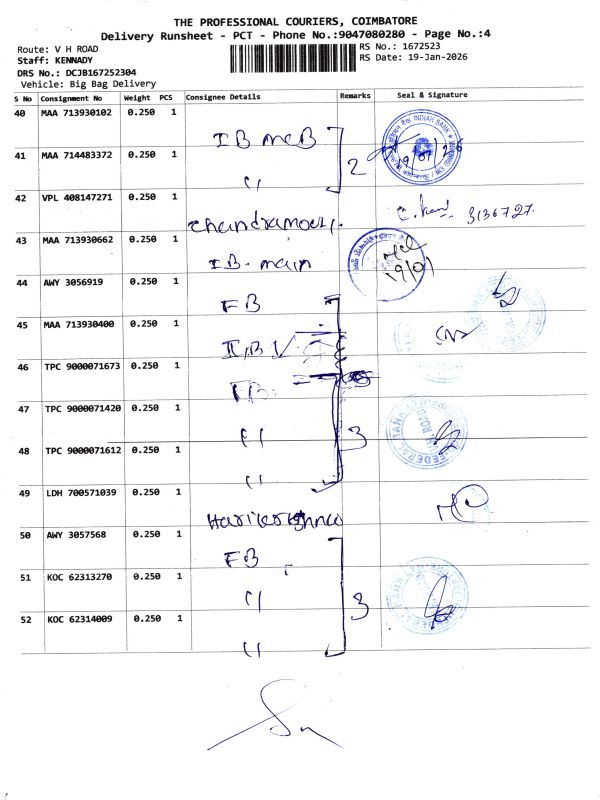 THE PROFESSIONAL COURIERS, COIMBATORE
Delivery Runsheet - PCT - Phone No.:9047080280 - Page No.:4
Route: V H ROAD
RS No.: 1672523
Staff: KENNADY
RS Date: 19-Jan-2026
DRS No.: DCJB167252304
Vehicle: Big Bag Delivery
S No Consignment No Weight PCS Consignee Details Remarks Seal & Signature
40 MAA 713930102 0.250 1
IB MCB
41 MAA 714483372 0.250 1
2
INDIAN BANK
19/01/26
"
42 VPL 408147271 0.250 1
3136727.
43 MAA 713930662 0.250 1
IB. main
19/01
44 AWY 3056919 0.250 1
FB
45 MAA 713930400 0.250 1
46 TPC 9000071673 0.250 1
FB.
47 TPC 9000071420 0.250 1
"
3
48 TPC 9000071612 0.250 1
"
49 LDH 700571039 0.250 1
50 AWY 3057568 0.250 1
FB
51 KOC 62313270 0.250 1
"
3
52 KOC 62314009 0.250 1
"